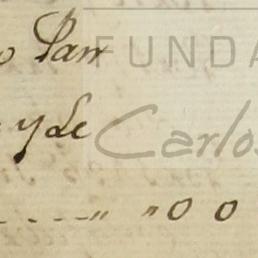 o Parr
FUNDA
y Le
Carlos
. . - - - " " 0 0